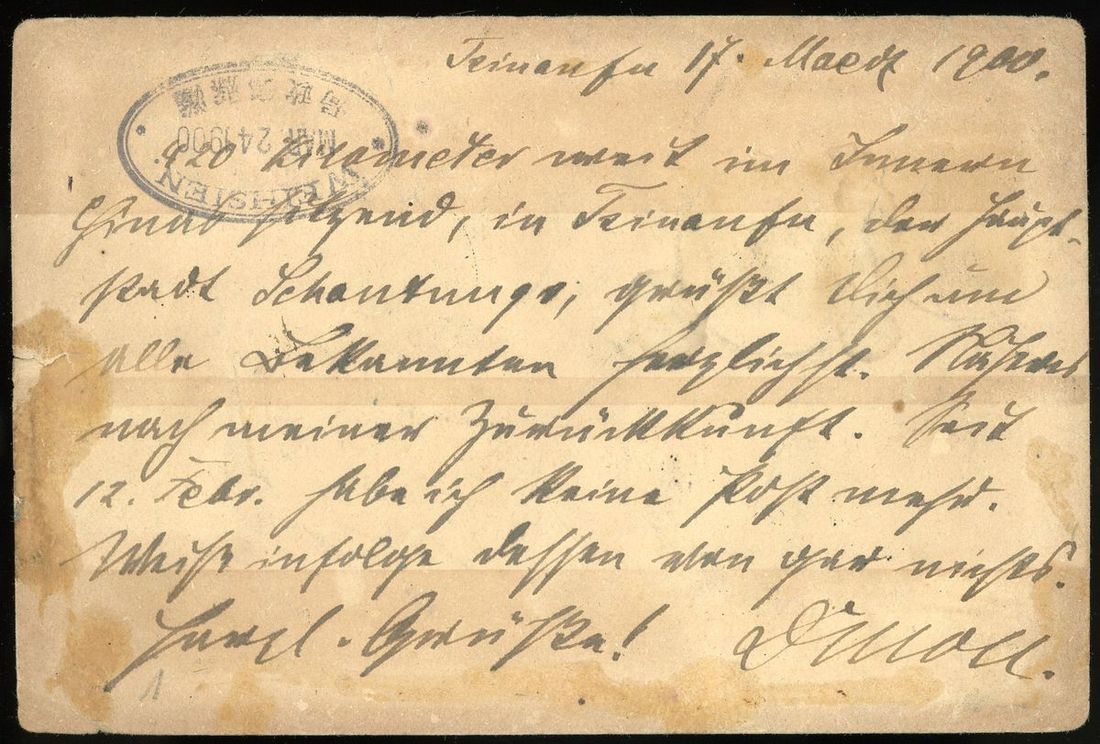 Tsinanfu 17. Maerz 1900.
WEIHSIEN.
MAR 24 1900
420 Kilometer weit im Innern
Chinas sitzend, in Tsinanfu, der Haupt-
stadt Schantungs, grüßt Dich und
alle Bekannten herzlichst. Näheres
nach meiner Zurückkunft. Seit
12. Febr. habe ich keine Post mehr.
Weiß infolge dessen von gar nichts.
Herzl. Grüße!
1